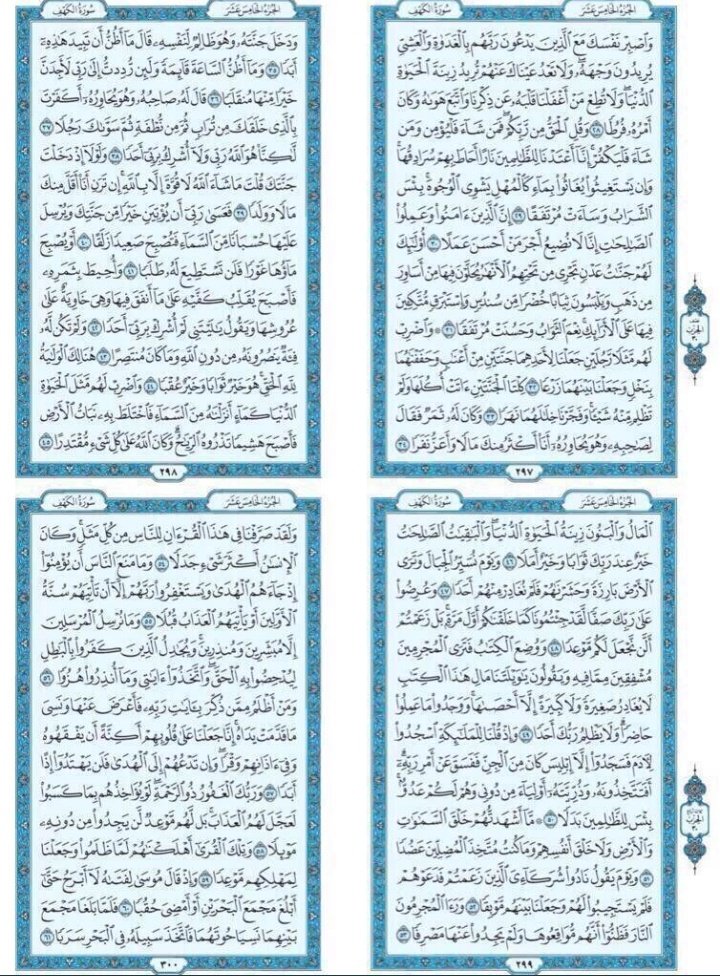 الجُزءُ الخَامِسَ عَشَرَ سُورَةُ الكَهْفِ
وَٱصْبِرْ نَفْسَكَ مَعَ ٱلَّذِينَ يَدْعُونَ رَبَّهُم بِٱلْغَدَوٰةِ وَٱلْعَشِيِّ
يُرِيدُونَ وَجْهَهُۥ وَلَا تَعْدُ عَيْنَاكَ عَنْهُمْ تُرِيدُ زِينَةَ ٱلْحَيَوٰةِ
ٱلدُّنْيَا وَلَا تُطِعْ مَنْ أَغْفَلْنَا قَلْبَهُۥ عَن ذِكْرِنَا وَٱتَّبَعَ هَوَىٰهُ وَكَانَ
أَمْرُهُۥ فُرُطًا ٢٨ وَقُلِ ٱلْحَقُّ مِن رَّبِّكُمْ فَمَن شَآءَ فَلْيُؤْمِن وَمَن
شَآءَ فَلْيَكْفُرْ إِنَّآ أَعْتَدْنَا لِلظَّٰلِمِينَ نَارًا أَحَاطَ بِهِمْ سُرَادِقُهَا
وَإِن يَسْتَغِيثُوا۟ يُغَاثُوا۟ بِمَآءٍ كَٱلْمُهْلِ يَشْوِى ٱلْوُجُوهَ بِئْسَ
ٱلشَّرَابُ وَسَآءَتْ مُرْتَفَقًا ٢٩ إِنَّ ٱلَّذِينَ ءَامَنُوا۟ وَعَمِلُوا۟
ٱلصَّٰلِحَٰتِ إِنَّا لَا نُضِيعُ أَجْرَ مَنْ أَحْسَنَ عَمَلًا ٣٠ أُو۟لَٰٓئِكَ
لَهُمْ جَنَّٰتُ عَدْنٍ تَجْرِى مِن تَحْتِهِمُ ٱلْأَنْهَٰرُ يُحَلَّوْنَ فِيهَا مِنْ أَسَاوِرَ
مِن ذَهَبٍ وَيَلْبَسُونَ ثِيَابًا خُضْرًا مِّن سُندُسٍ وَإِسْتَبْرَقٍ مُّتَّكِـِٔينَ
فِيهَا عَلَى ٱلْأَرَآئِكِ نِعْمَ ٱلثَّوَابُ وَحَسُنَتْ مُرْتَفَقًا ٣١ ۞ وَٱضْرِبْ
لَهُم مَّثَلًا رَّجُلَيْنِ جَعَلْنَا لِأَحَدِهِمَا جَنَّتَيْنِ مِنْ أَعْنَٰبٍ وَحَفَفْنَٰهُمَا
بِنَخْلٍ وَجَعَلْنَا بَيْنَهُمَا زَرْعًا ٣٢ كِلْتَا ٱلْجَنَّتَيْنِ ءَاتَتْ أُكُلَهَا وَلَمْ
تَظْلِم مِّنْهُ شَيْـًٔا وَفَجَّرْنَا خِلَٰلَهُمَا نَهَرًا ٣٣ وَكَانَ لَهُۥ ثَمَرٌ فَقَالَ
لِصَٰحِبِهِۦ وَهُوَ يُحَاوِرُهُۥٓ أَنَا۠ أَكْثَرُ مِنكَ مَالًا وَأَعَزُّ نَفَرًا ٣٤
٢٩٧
الجُزءُ الخَامِسَ عَشَرَ سُورَةُ الكَهْفِ
وَدَخَلَ جَنَّتَهُۥ وَهُوَ ظَالِمٌ لِّنَفْسِهِۦ قَالَ مَآ أَظُنُّ أَن تَبِيدَ هَٰذِهِۦٓ
أَبَدًا ٣٥ وَمَآ أَظُنُّ ٱلسَّاعَةَ قَآئِمَةً وَلَئِن رُّدِدتُّ إِلَىٰ رَبِّى لَأَجِدَنَّ
خَيْرًا مِّنْهَا مُنقَلَبًا ٣٦ قَالَ لَهُۥ صَاحِبُهُۥ وَهُوَ يُحَاوِرُهُۥٓ أَكَفَرْتَ
بِٱلَّذِى خَلَقَكَ مِن تُرَابٍ ثُمَّ مِن نُّطْفَةٍ ثُمَّ سَوَّىٰكَ رَجُلًا ٣٧
لَّٰكِنَّا۠ هُوَ ٱللَّهُ رَبِّى وَلَآ أُشْرِكُ بِرَبِّىٓ أَحَدًا ٣٨ وَلَوْلَآ إِذْ دَخَلْتَ
جَنَّتَكَ قُلْتَ مَا شَآءَ ٱللَّهُ لَا قُوَّةَ إِلَّا بِٱللَّهِ إِن تَرَنِ أَنَا۠ أَقَلَّ مِنكَ
مَالًا وَوَلَدًا ٣٩ فَعَسَىٰ رَبِّىٓ أَن يُؤْتِيَنِ خَيْرًا مِّن جَنَّتِكَ وَيُرْسِلَ
عَلَيْهَا حُسْبَانًا مِّنَ ٱلسَّمَآءِ فَتُصْبِحَ صَعِيدًا زَلَقًا ٤٠ أَوْ يُصْبِحَ
مَآؤُهَا غَوْرًا فَلَن تَسْتَطِيعَ لَهُۥ طَلَبًا ٤١ وَأُحِيطَ بِثَمَرِهِۦ
فَأَصْبَحَ يُقَلِّبُ كَفَّيْهِ عَلَىٰ مَآ أَنفَقَ فِيهَا وَهِىَ خَاوِيَةٌ عَلَىٰ
عُرُوشِهَا وَيَقُولُ يَٰلَيْتَنِى لَمْ أُشْرِكْ بِرَبِّىٓ أَحَدًا ٤٢ وَلَمْ تَكُن لَّهُۥ
فِئَةٌ يَنصُرُونَهُۥ مِن دُونِ ٱللَّهِ وَمَا كَانَ مُنتَصِرًا ٤٣ هُنَالِكَ ٱلْوَلَٰيَةُ
لِلَّهِ ٱلْحَقِّ هُوَ خَيْرٌ ثَوَابًا وَخَيْرٌ عُقْبًا ٤٤ وَٱضْرِبْ لَهُم مَّثَلَ ٱلْحَيَوٰةِ
ٱلدُّنْيَا كَمَآءٍ أَنزَلْنَٰهُ مِنَ ٱلسَّمَآءِ فَٱخْتَلَطَ بِهِۦ نَبَاتُ ٱلْأَرْضِ
فَأَصْبَحَ هَشِيمًا تَذْرُوهُ ٱلرِّيَٰحُ وَكَانَ ٱللَّهُ عَلَىٰ كُلِّ شَىْءٍ مُّقْتَدِرًا ٤٥
٢٩٨
الجُزءُ الخَامِسَ عَشَرَ سُورَةُ الكَهْفِ
ٱلْمَالُ وَٱلْبَنُونَ زِينَةُ ٱلْحَيَوٰةِ ٱلدُّنْيَا وَٱلْبَٰقِيَٰتُ ٱلصَّٰلِحَٰتُ
خَيْرٌ عِندَ رَبِّكَ ثَوَابًا وَخَيْرٌ أَمَلًا ٤٦ وَيَوْمَ نُسَيِّرُ ٱلْجِبَالَ وَتَرَى
ٱلْأَرْضَ بَارِزَةً وَحَشَرْنَٰهُمْ فَلَمْ نُغَادِرْ مِنْهُمْ أَحَدًا ٤٧ وَعُرِضُوا۟
عَلَىٰ رَبِّكَ صَفًّا لَّقَدْ جِئْتُمُونَا كَمَا خَلَقْنَٰكُمْ أَوَّلَ مَرَّةٍ بَلْ زَعَمْتُمْ
أَلَّن نَّجْعَلَ لَكُم مَّوْعِدًا ٤٨ وَوُضِعَ ٱلْكِتَٰبُ فَتَرَى ٱلْمُجْرِمِينَ
مُشْفِقِينَ مِمَّا فِيهِ وَيَقُولُونَ يَٰوَيْلَتَنَا مَالِ هَٰذَا ٱلْكِتَٰبِ
لَا يُغَادِرُ صَغِيرَةً وَلَا كَبِيرَةً إِلَّآ أَحْصَىٰهَا وَوَجَدُوا۟ مَا عَمِلُوا۟
حَاضِرًا وَلَا يَظْلِمُ رَبُّكَ أَحَدًا ٤٩ وَإِذْ قُلْنَا لِلْمَلَٰٓئِكَةِ ٱسْجُدُوا۟
لِـَٔادَمَ فَسَجَدُوٓا۟ إِلَّآ إِبْلِيسَ كَانَ مِنَ ٱلْجِنِّ فَفَسَقَ عَنْ أَمْرِ رَبِّهِۦٓ
أَفَتَتَّخِذُونَهُۥ وَذُرِّيَّتَهُۥٓ أَوْلِيَآءَ مِن دُونِى وَهُمْ لَكُمْ عَدُوٌّۢ
بِئْسَ لِلظَّٰلِمِينَ بَدَلًا ٥٠ ۞ مَّآ أَشْهَدتُّهُمْ خَلْقَ ٱلسَّمَٰوَٰتِ
وَٱلْأَرْضِ وَلَا خَلْقَ أَنفُسِهِمْ وَمَا كُنتُ مُتَّخِذَ ٱلْمُضِلِّينَ عَضُدًا
٥١ وَيَوْمَ يَقُولُ نَادُوا۟ شُرَكَآءِىَ ٱلَّذِينَ زَعَمْتُمْ فَدَعَوْهُمْ
فَلَمْ يَسْتَجِيبُوا۟ لَهُمْ وَجَعَلْنَا بَيْنَهُم مَّوْبِقًا ٥٢ وَرَءَا ٱلْمُجْرِمُونَ
ٱلنَّارَ فَظَنُّوٓا۟ أَنَّهُم مُّوَاقِعُوهَا وَلَمْ يَجِدُوا۟ عَنْهَا مَصْرِفًا ٥٣
٢٩٩
الجُزءُ الخَامِسَ عَشَرَ سُورَةُ الكَهْفِ
وَلَقَدْ صَرَّفْنَا فِى هَٰذَا ٱلْقُرْءَانِ لِلنَّاسِ مِن كُلِّ مَثَلٍ وَكَانَ
ٱلْإِنسَٰنُ أَكْثَرَ شَىْءٍ جَدَلًا ٥٤ وَمَا مَنَعَ ٱلنَّاسَ أَن يُؤْمِنُوٓا۟
إِذْ جَآءَهُمُ ٱلْهُدَىٰ وَيَسْتَغْفِرُوا۟ رَبَّهُمْ إِلَّآ أَن تَأْتِيَهُمْ سُنَّةُ
ٱلْأَوَّلِينَ أَوْ يَأْتِيَهُمُ ٱلْعَذَابُ قُبُلًا ٥٥ وَمَا نُرْسِلُ ٱلْمُرْسَلِينَ
إِلَّا مُبَشِّرِينَ وَمُنذِرِينَ وَيُجَٰدِلُ ٱلَّذِينَ كَفَرُوا۟ بِٱلْبَٰطِلِ
لِيُدْحِضُوا۟ بِهِ ٱلْحَقَّ وَٱتَّخَذُوٓا۟ ءَايَٰتِى وَمَآ أُنذِرُوا۟ هُزُوًا ٥٦
وَمَنْ أَظْلَمُ مِمَّن ذُكِّرَ بِـَٔايَٰتِ رَبِّهِۦ فَأَعْرَضَ عَنْهَا وَنَسِىَ
مَا قَدَّمَتْ يَدَاهُ إِنَّا جَعَلْنَا عَلَىٰ قُلُوبِهِمْ أَكِنَّةً أَن يَفْقَهُوهُ
وَفِىٓ ءَاذَانِهِمْ وَقْرًا وَإِن تَدْعُهُمْ إِلَى ٱلْهُدَىٰ فَلَن يَهْتَدُوٓا۟ إِذًا
أَبَدًا ٥٧ وَرَبُّكَ ٱلْغَفُورُ ذُو ٱلرَّحْمَةِ لَوْ يُؤَاخِذُهُم بِمَا كَسَبُوا۟
لَعَجَّلَ لَهُمُ ٱلْعَذَابَ بَل لَّهُم مَّوْعِدٌ لَّن يَجِدُوا۟ مِن دُونِهِۦ
مَوْئِلًا ٥٨ وَتِلْكَ ٱلْقُرَىٰٓ أَهْلَكْنَٰهُمْ لَمَّا ظَلَمُوا۟ وَجَعَلْنَا
لِمَهْلِكِهِم مَّوْعِدًا ٥٩ وَإِذْ قَالَ مُوسَىٰ لِفَتَىٰهُ لَآ أَبْرَحُ حَتَّىٰٓ
أَبْلُغَ مَجْمَعَ ٱلْبَحْرَيْنِ أَوْ أَمْضِىَ حُقُبًا ٦٠ فَلَمَّا بَلَغَا مَجْمَعَ
بَيْنِهِمَا نَسِيَا حُوتَهُمَا فَٱتَّخَذَ سَبِيلَهُۥ فِى ٱلْبَحْرِ سَرَبًا ٦١
٣٠٠